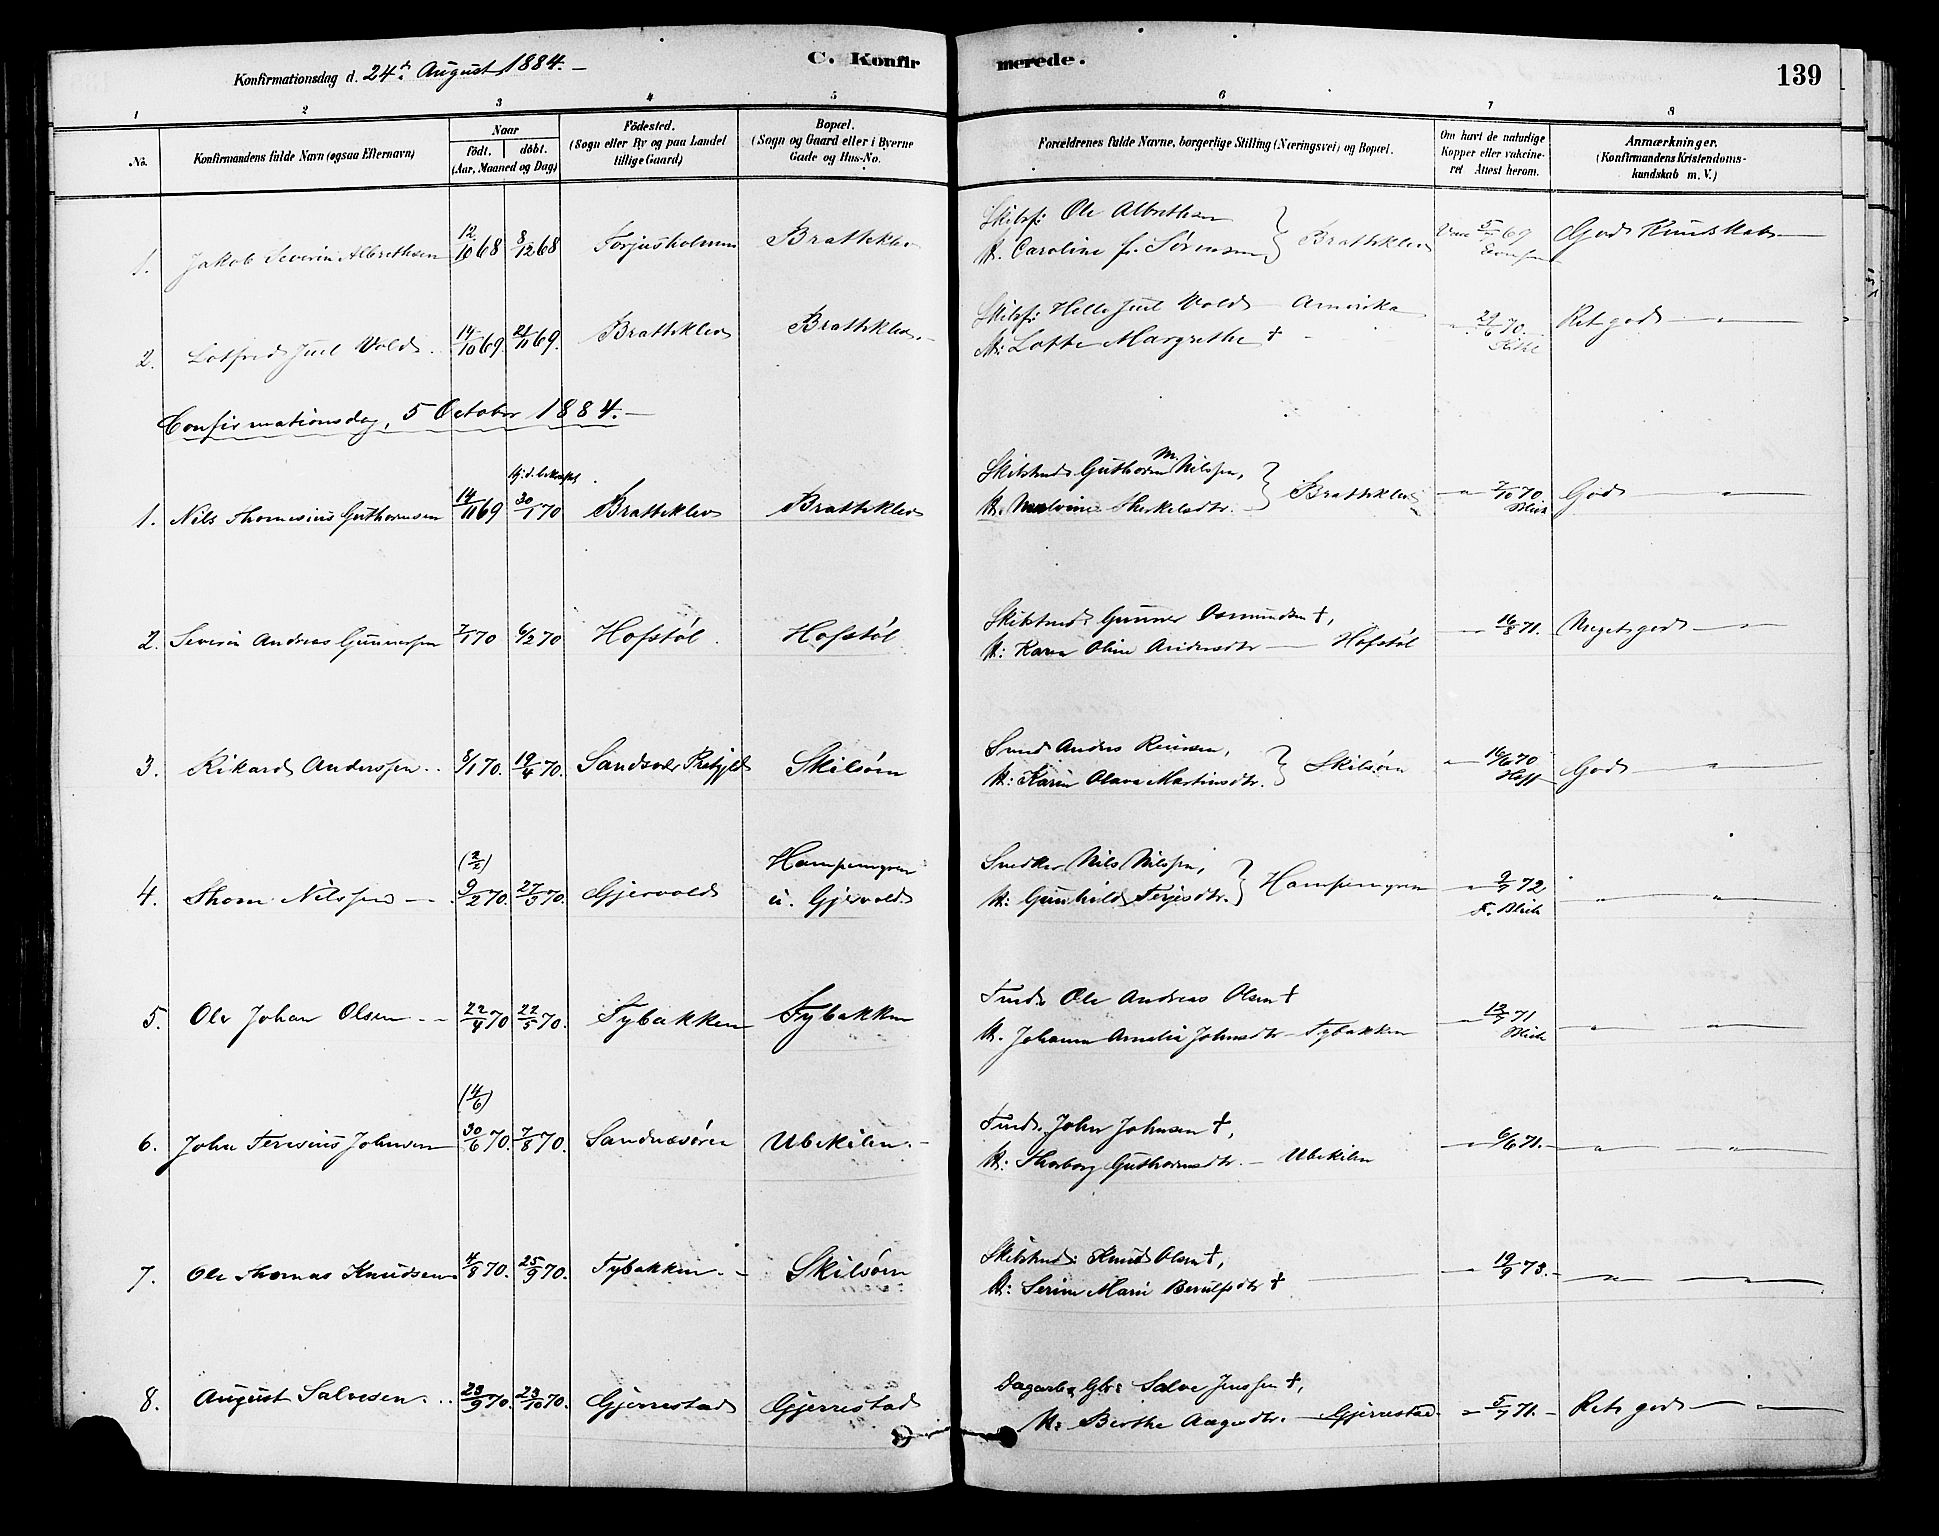 Konfirmationsdag d. 24de August 1884. –
C. Konfirmerede.
139
1 2 3 4 5 6 7 8
No.
Konfirmandens fulde Navn (ogsaa Efternavn)
Naar
födt. döbt.
(Aar, Maaned og Dag)
Födested.
(Sogn eller By og paa Landet
tillige Gaard)
Bopæl.
(Sogn og Gaard eller i Byerne
Gade og Hus-No.
Forældrenes fulde Navne, borgerlige Stilling (Næringsvei) og Bopæl.
Om havt de naturlige
Kopper eller vakcine-
ret Attest herom.
Anmærkninger.
(Konfirmandens Kristendoms-
kundskab m. V.)
1. Jakob Severin Albrethsen 12/10 68 8/12 68 Torjusholmen Bratteklev
Skibsf: Ole Albrethsen
M. Caroline f. Sørensen } Bratteklev 69 God Kundskab —
2. Lotfred Juel Vold. 14/10 69. 21/11 69. Bratteklev Bratteklev.
Skibsf: Helle Juel Vold Amerika
M: Lotte Margrethe † 70. Ret god — " —
Confirmationsdag, 5 October 1884. —
1. Nils Thomesius Guthormsen 14/11 69 30/1 70 Bratteklev Bratteklev
Skibstmd: Guthorm M. Nilssen,
M. Malvine Therkelsdtr. } Bratteklev — " 7/10 70. Blich God — " —
2. Severin Andreas Gunnersen 7/1 70 6/2 70 Hofstøl. Hofstøl
Skibstmd: Gunner Osmundsen †,
M: Karen Oline Andersdtr — Hofstøl 16/8 71. Meget god — " —
3. Rikard Anderssen.. 8/1 70. 19/4 70. Sandsvær Prstgjld Skilsøen
Smed Anders
M: Karin Olava Martinsdtr. } Skilsøen — " 16/6 70 God — " —
4. Thom Nilssen — . (2/2) 9/2 70. 27/3 70. Gjervold Hampemyren
u. Gjervold.
Snedker Nils Nilssen,
M: Gunhild Terjesdtr. } Hampemyren — " 9/7 72 F. Blich " — "
5. Ole Johan Olsen -- 22/4 70 22/5 70. Tybakken Tybakken
Tmd: Ole Andreas Olsen †
M. Johanne Amalie Johnsdtr — Tybakken — " 13/7 71 Blich " — "
6. John Teresius Johnsen (4/6) 30/6 70. 7/8 70. Sandnæsøren Ubekilen. —
Tmd: John Johnsen †,
M: Thorborg Guthormsdtr. — Ubekilen — " 6/6 71. — " — " —
7. Ole Thomas Knudsen 4/8 70. 25/9 70. Tybakken. — Skilsøen
Skibstmd: Knud Olsen †,
M: Serine Marie Berulfsdtr † — " 19/9 73. — " — " —
8. August Salvesen. .. 23/9 70. 23/10 70. Gjerrestad Gjerrestad
Dagarb. Gbr: Salve Jenssen †,
M: Berthe Aagesdtr. — Gjerrestad. — " 5/7 71. — Ret god — " —